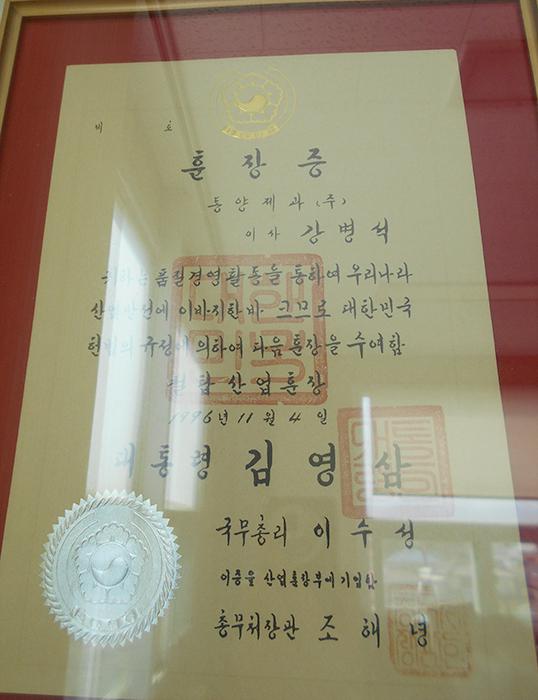 훈장증
동양제과(주)
이사 강병석
귀하는 품질경영활동을 통하여 우리나라
산업발전에 이바지한바 크므로 대한민국
헌법의 규정에 의하여 다음 훈장을 수여함
철탑산업훈장
1996년 11월 4일
대통령 김영삼
국무총리 이수성
이증을 산업훈장부에 기입함
총무처장관 조해녕